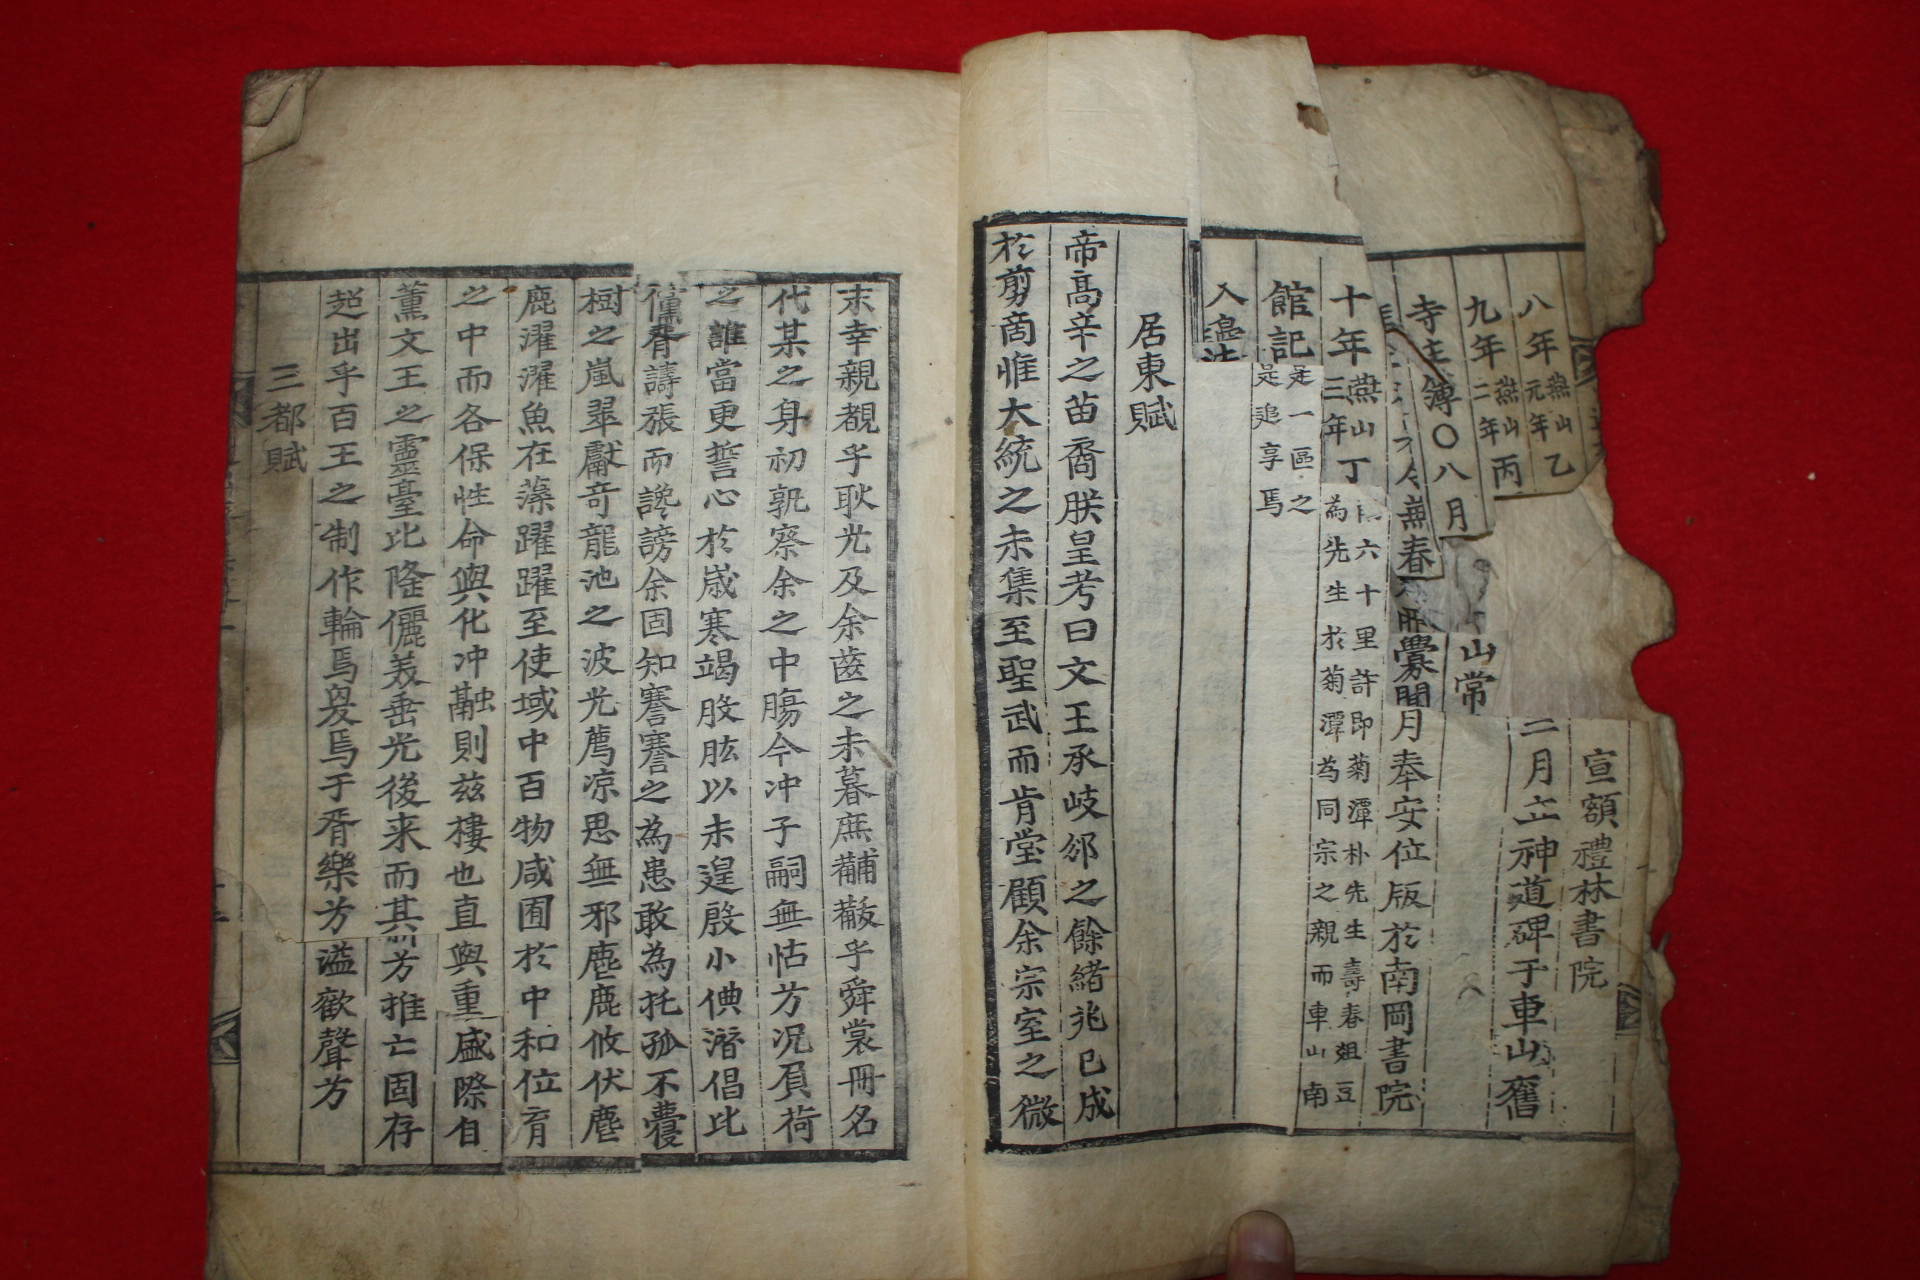 宣額禮林書院
八年燕山元年乙
二月立神道碑于車山舊
九年燕山二年丙
山常
寺主簿〇八月
春
月奉安位版於南岡書院
十年燕山三年丁
六十里許即菊潭朴先生壽春俎豆
為先生於菊潭為同宗之親而車山南
館記
是一區之
是追享焉
入
居東賦
帝高辛之苗裔朕皇考曰文王承岐邠之餘緒兆已成
於剪商惟大統之未集至聖武而肯堂顧余宗室之微
末幸親覩乎耿光及余齒之未暮庶黼黻乎舜裳冊名
代某之身初孰察余之中腸今冲子嗣無怙方况負荷
之誰當更誓心於歲寒竭股肱以未遑殷小倎潛倡比
讒脊譸張而讒謗余固知謇謇之為患敢為托孤不虁
樹之嵐翠獻奇龍池之波光薦凉思無邪麀鹿攸伏麀
鹿濯濯魚在藻躍躍至使域中百物咸囿於中和位育
之中而各保性命與化冲融則兹樓也直與重盛際自
薰文王之靈臺比隆儷美垂光後来而其
方推亡固存
超出乎百王之制作輪焉奐焉于胥樂方
溢歡聲方
三都賦